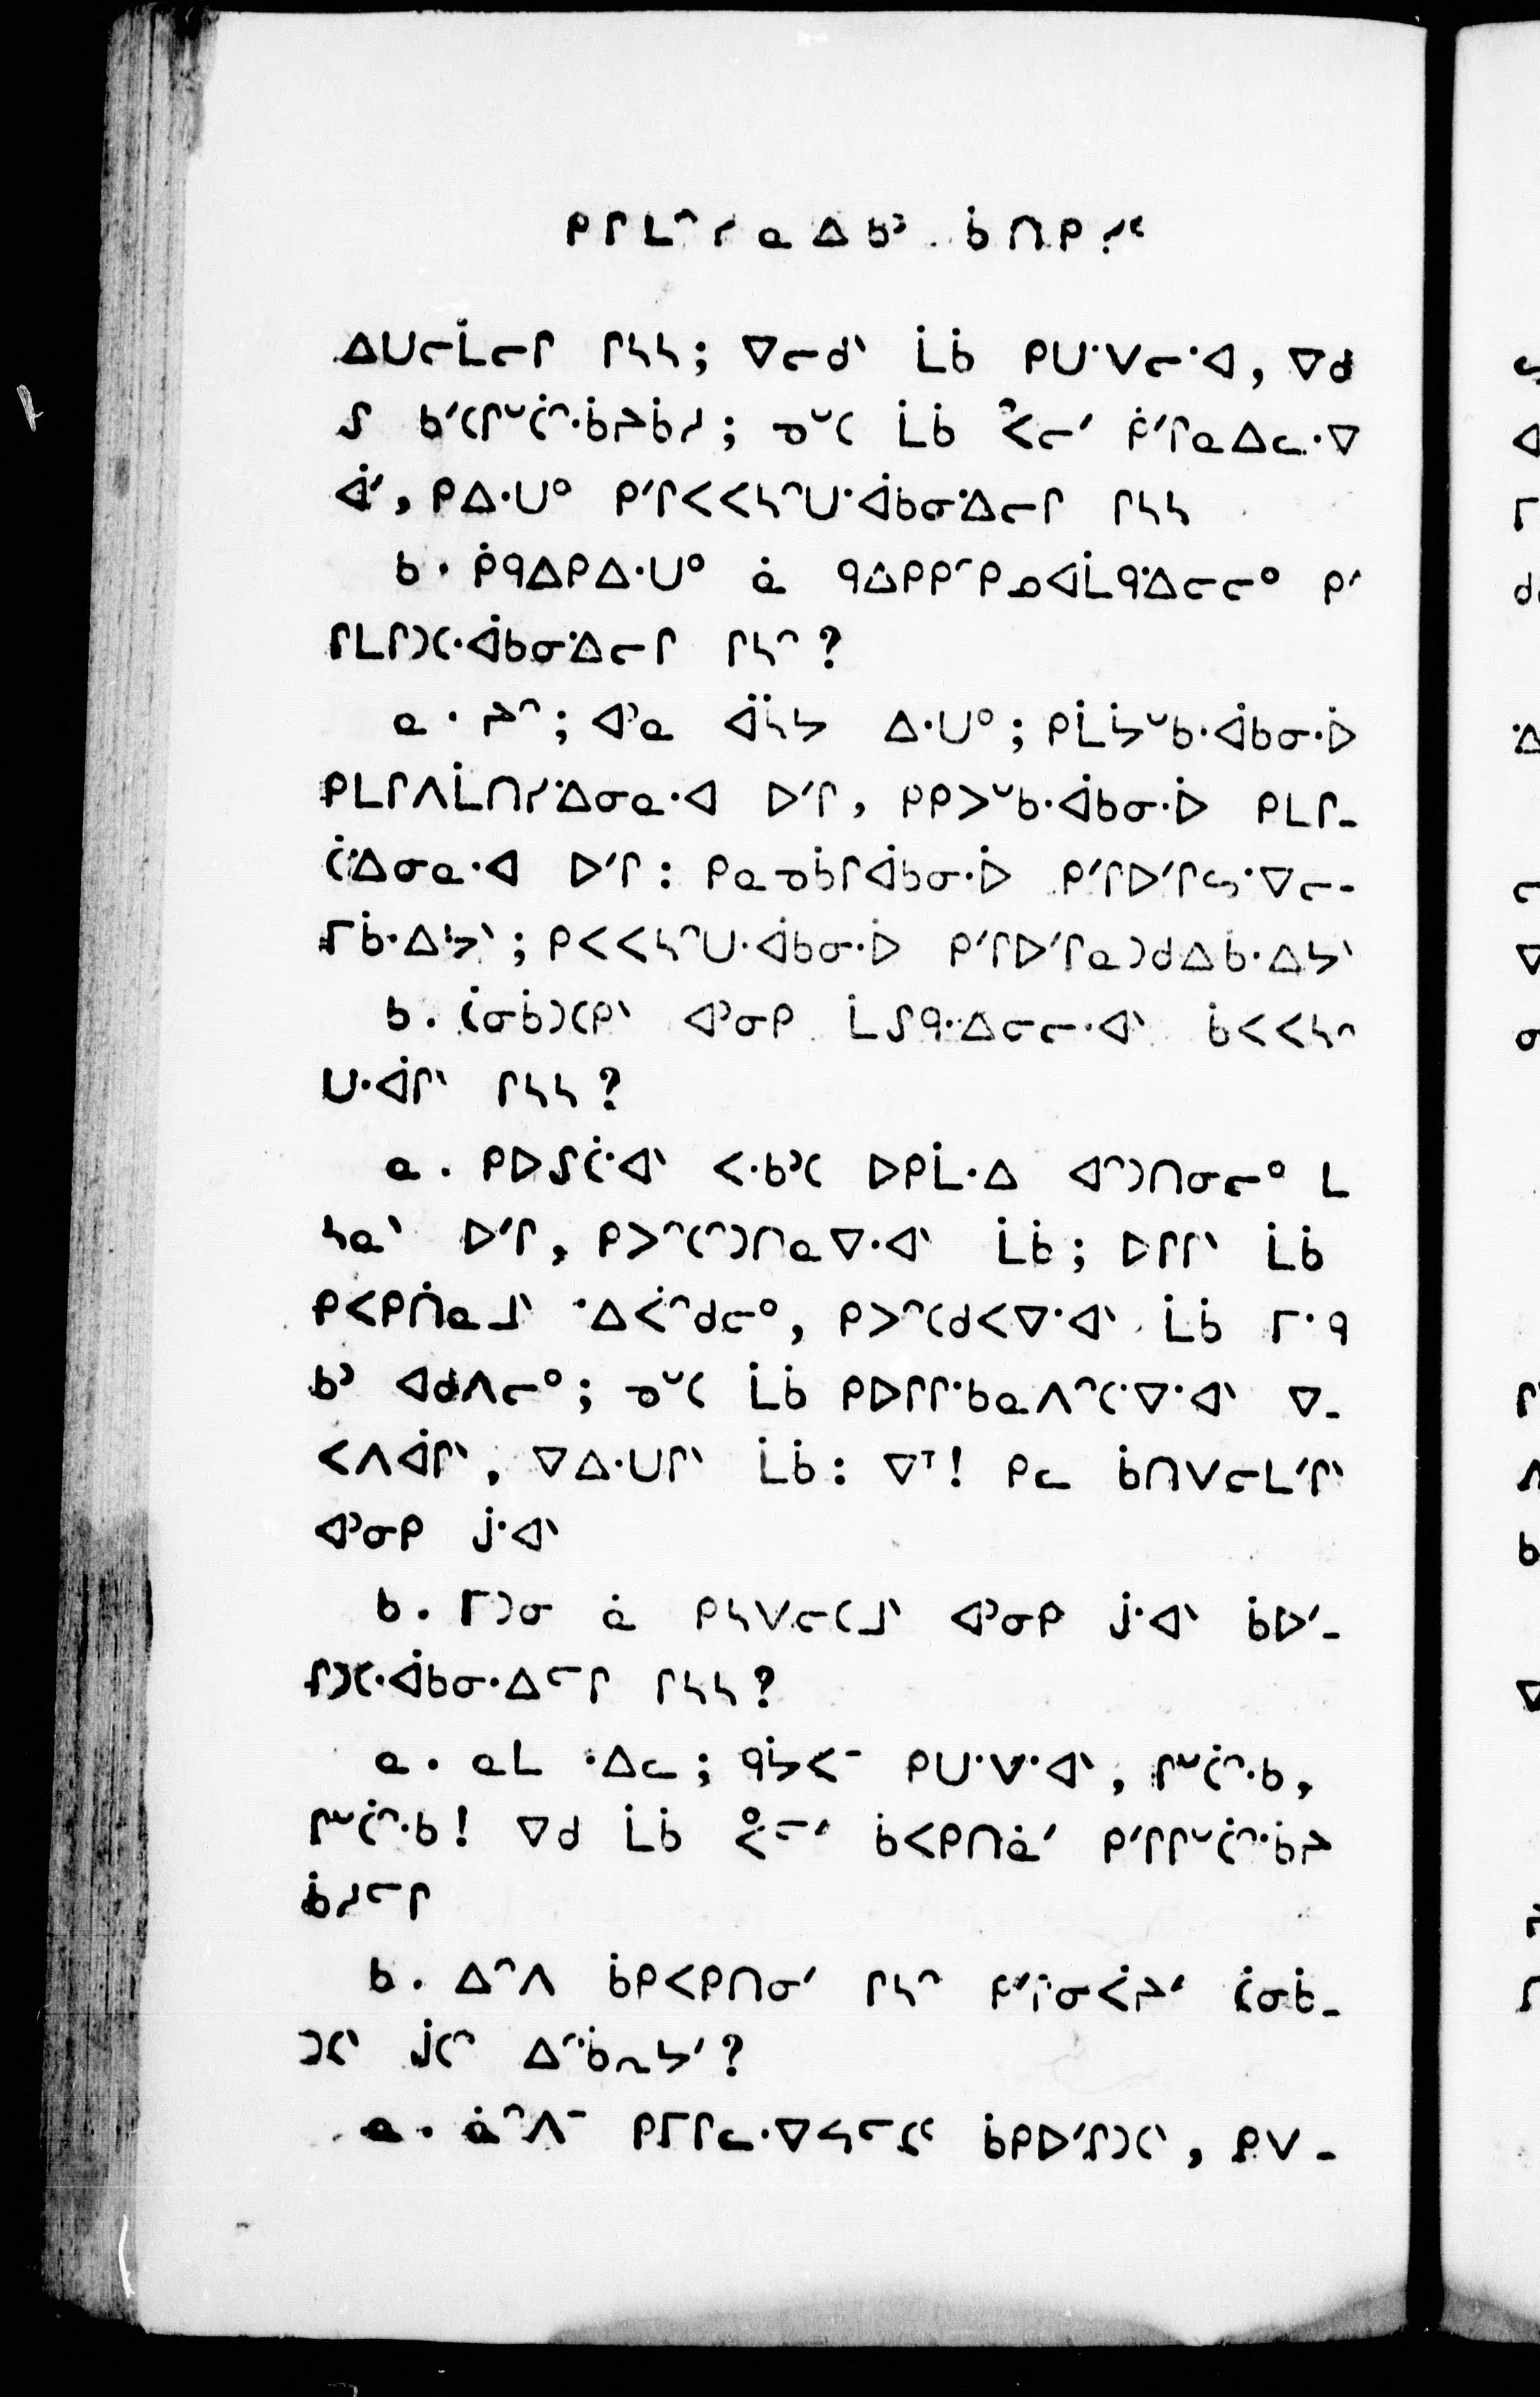 ᑭᒋᒪᐢᓯᓇᐃᑲᐣ ᑳᑎᑭᓯᑦ
ᐃᑌᓕᒫᓕᒋ ᒋᓴᓴ; ᐁᓕᑯᐠ ᒫᑳ ᑭᑌᐧᐯᓕᐧᐊ, ᐁᑯ
ᔑ ᑲᐟᑕᒋᐡᑖᐢᑳᐧᔨᑳᓱ; ᓀᐡᑕ ᒫᑳ
ᐋᐟ, ᑭᐃᐧᑌᐤ ᑭᐟᒋᐸᐸᓴᐢᑌᐧᐋᑲᓂᐧᐃᓕᒋ ᒋᓴᓴ
ᑲ. ᑮᑫᐃᑭᐃᐧᑌᐤ ᓈ ᑭᐟ
ᒋᒪᒋᑐᑕᐧᐋᑲᓂᐧᐃᓕᒋ ᒋᓴᐢ?
ᓇ. ᔨᐢ; ᐊᐣᓇ ᐃᐧᑌᐤ; ᑭᒫᔭᐡᑲᐧᐋᑲᓂᐧᐆ
ᑭᒪᒋᐱᒫᑎᓯᐧᐃᓂᓇᐧᐊ ᐅᐟᒋ, ᑭᑭᐳᐡᑲᐧᐋᑲᓂᐧᐆ ᑭᒪᒋ-
ᑖᐧᐃᓂᓇᐧᐊ ᐅᐟᒋ: ᑭᓇᓀᑳᒋᐋᑲᓂᐧᐆ ᑭᐟᒋᐅᐟᒋᓭᐧᐁᓕ-
ᒥᑳᐧᐃᔭᐠ; ᑭᐸᐸᓴᐢᑌᐧᐋᑲᓂᐧᐆ ᑭᐟᒋᐅᐟᒋᓇᑐᑯᐃᑳᐧᐃᔭᐠ
ᑲ. ᑖᓂᑳᑐᑕᑭᐠ ᐊᐣᓂᑭ ᒫᔑᑫᐧᐃᓕᓕᐧᐊᐠ ᑳᐸᐸᓴᐢ
ᑌᐧᐋᒋᐠ ᒋᓴᓴ?
ᓇ. ᑭᐅᔑᑖᐧᐊᐠ ᐸᐧᑲᐣᑕ ᐅᑭᒫᐧᐃ ᐊᐢᑐᑎᓂᓕᐤ ᒪ
ᓴᓇᐠ ᐅᐟᒋ, ᑭᐳᐢᑕᐢᑐᑎᓇᐁᐧᐊᐠ ᒫᑳ; ᐅᒋᒋᐠ ᒫᑳ
ᑭᐸᑭᑎᓇᒧᐠ ᐧᐃᐹᐢᑯᓕᐤ, ᑭᐳᐢᑕᑯᐸᐁᐧᐊᐠ ᒫᑳ ᒥᐧᑫ
ᑲᐣ ᐊᑯᐱᓕᐤ; ᓀᐡᑕ ᒫᑳ ᑭᐅᒋᒋᐧᑲᓇᐱᐢᑕᐧᐁᐧᐊᐠ ᐁ-
ᐸᐱᐋᒋᐠ, ᐁᐃᐧᑌᒋᐠ ᒫᑳ: ᐁᐩ! ᑭᓚ ᑳᑎᐯᓕᒪᐟᒋᐠ
ᐊᐣᓂᑭ ᒎᐧᐊᐠ
ᑲ. ᒥᑐᓂ ᓈ ᑭᓴᐯᓕᑕᒧᐠ ᐊᐣᓂᑭ ᒎᐧᐊᐠ ᑳᐅᐟ-
ᒋᑐᑕᐧᐋᑲᓂᐧᐃᓕᒋ ᒋᓴᓴ?
ᓇ. ᓇᒪ ᐧᐃᓚ; ᑫᔮᐸᐨ ᑭᑌᐧᐯᐧᐊᐠ, ᒋᐡᑖᐢᐧᑲ,
ᒋᐡᑖᐢᐧᑲ! ᐁᑯ ᒫᑳ ᑳᐸᑭᑎᓈᐟ ᑭᐟᒋᒋᐡᑖᐢᑳᐧᔨ
ᑳᓱᓕᒋ
ᑲ. ᐃᐢᐱ ᑳᑭᐸᑭᑎᓂᐟ ᒋᓴᐢ ᑖᓂᑳ-
ᑐᑕᐠ ᒎᑕᐢ
ᓇ. ᓈᐢᐱᐨ ᑳᑭᐅᐟᒋᑐᑕᐠ, ᑭᐯ-